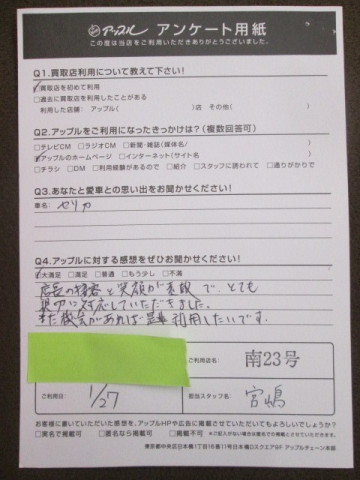 アップル アンケート用紙
この度は当店をご利用いただきありがとうございました。
Q1.買取店利用について教えて下さい!
□買取店を初めて利用
□過去に買取店を利用したことがある
利用した店舗: アップル( )店 その他( )
Q2.アップルをご利用になったきっかけは?(複数回答可)
□テレビCM □ラジオCM □新聞・雑誌(媒体名/ )
□アップルのホームページ □インターネット(サイト名 )
□チラシ □DM □利用経験があるので □紹介 □スタッフに誘われて □通りがかりで
Q3.あなたと愛車との思い出をお聞かせください!
車名: セリカ
Q4.アップルに対する感想をぜひお聞かせください!
□大満足 □満足 □普通 □もう少し □不満
店長の接客と笑顔が素敵で、とても
親切に対応していただきました。
また機会があれば是非利用したいです。
ご利用店名 南23号
ご利用日 1/27 担当スタッフ名 宮嶋
お客様に書いていただいた感想を、アップルHPや広告に掲載させていただいてもよろしいでしょうか?
□実名で掲載可 □匿名なら掲載可 □掲載不可 ※ご記入がない場合は匿名での掲載とさせていただきます。
東京都中央区日本橋1丁目16番11号日本橋Dスクエア9F アップルチェーン本部